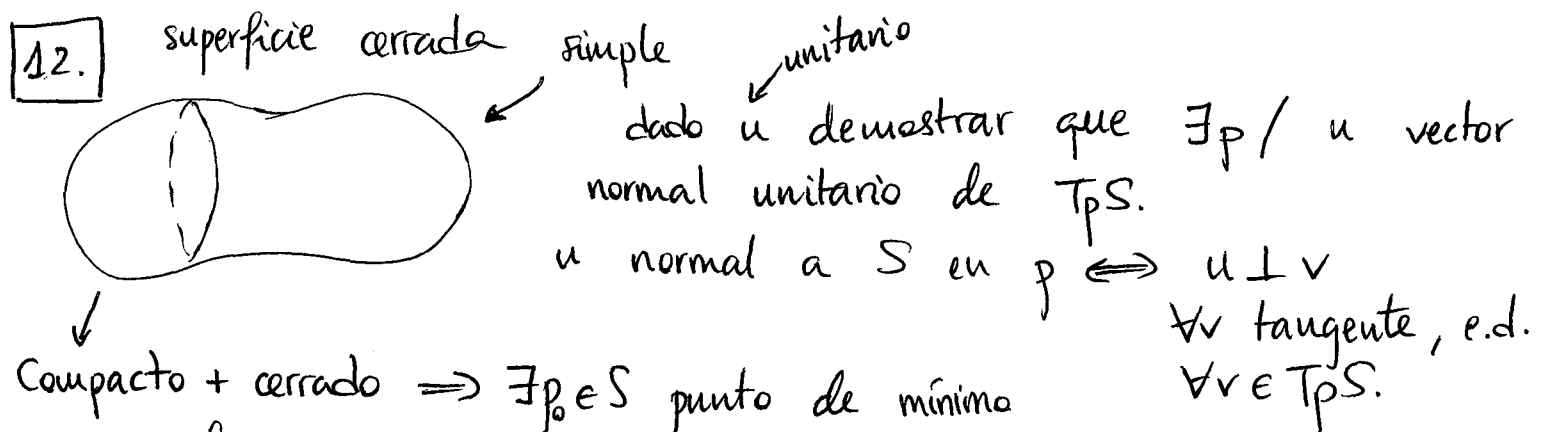 12. superficie cerrada simple unitario
dado u demostrar que ∃p / u vector
normal unitario de TpS.
u normal a S en p ⟺ u ⊥ v
∀v tangente, e.d.
∀v ∈ TpS.
Compacto + cerrado ⟹ ∃p₀ ∈ S punto de mínimo